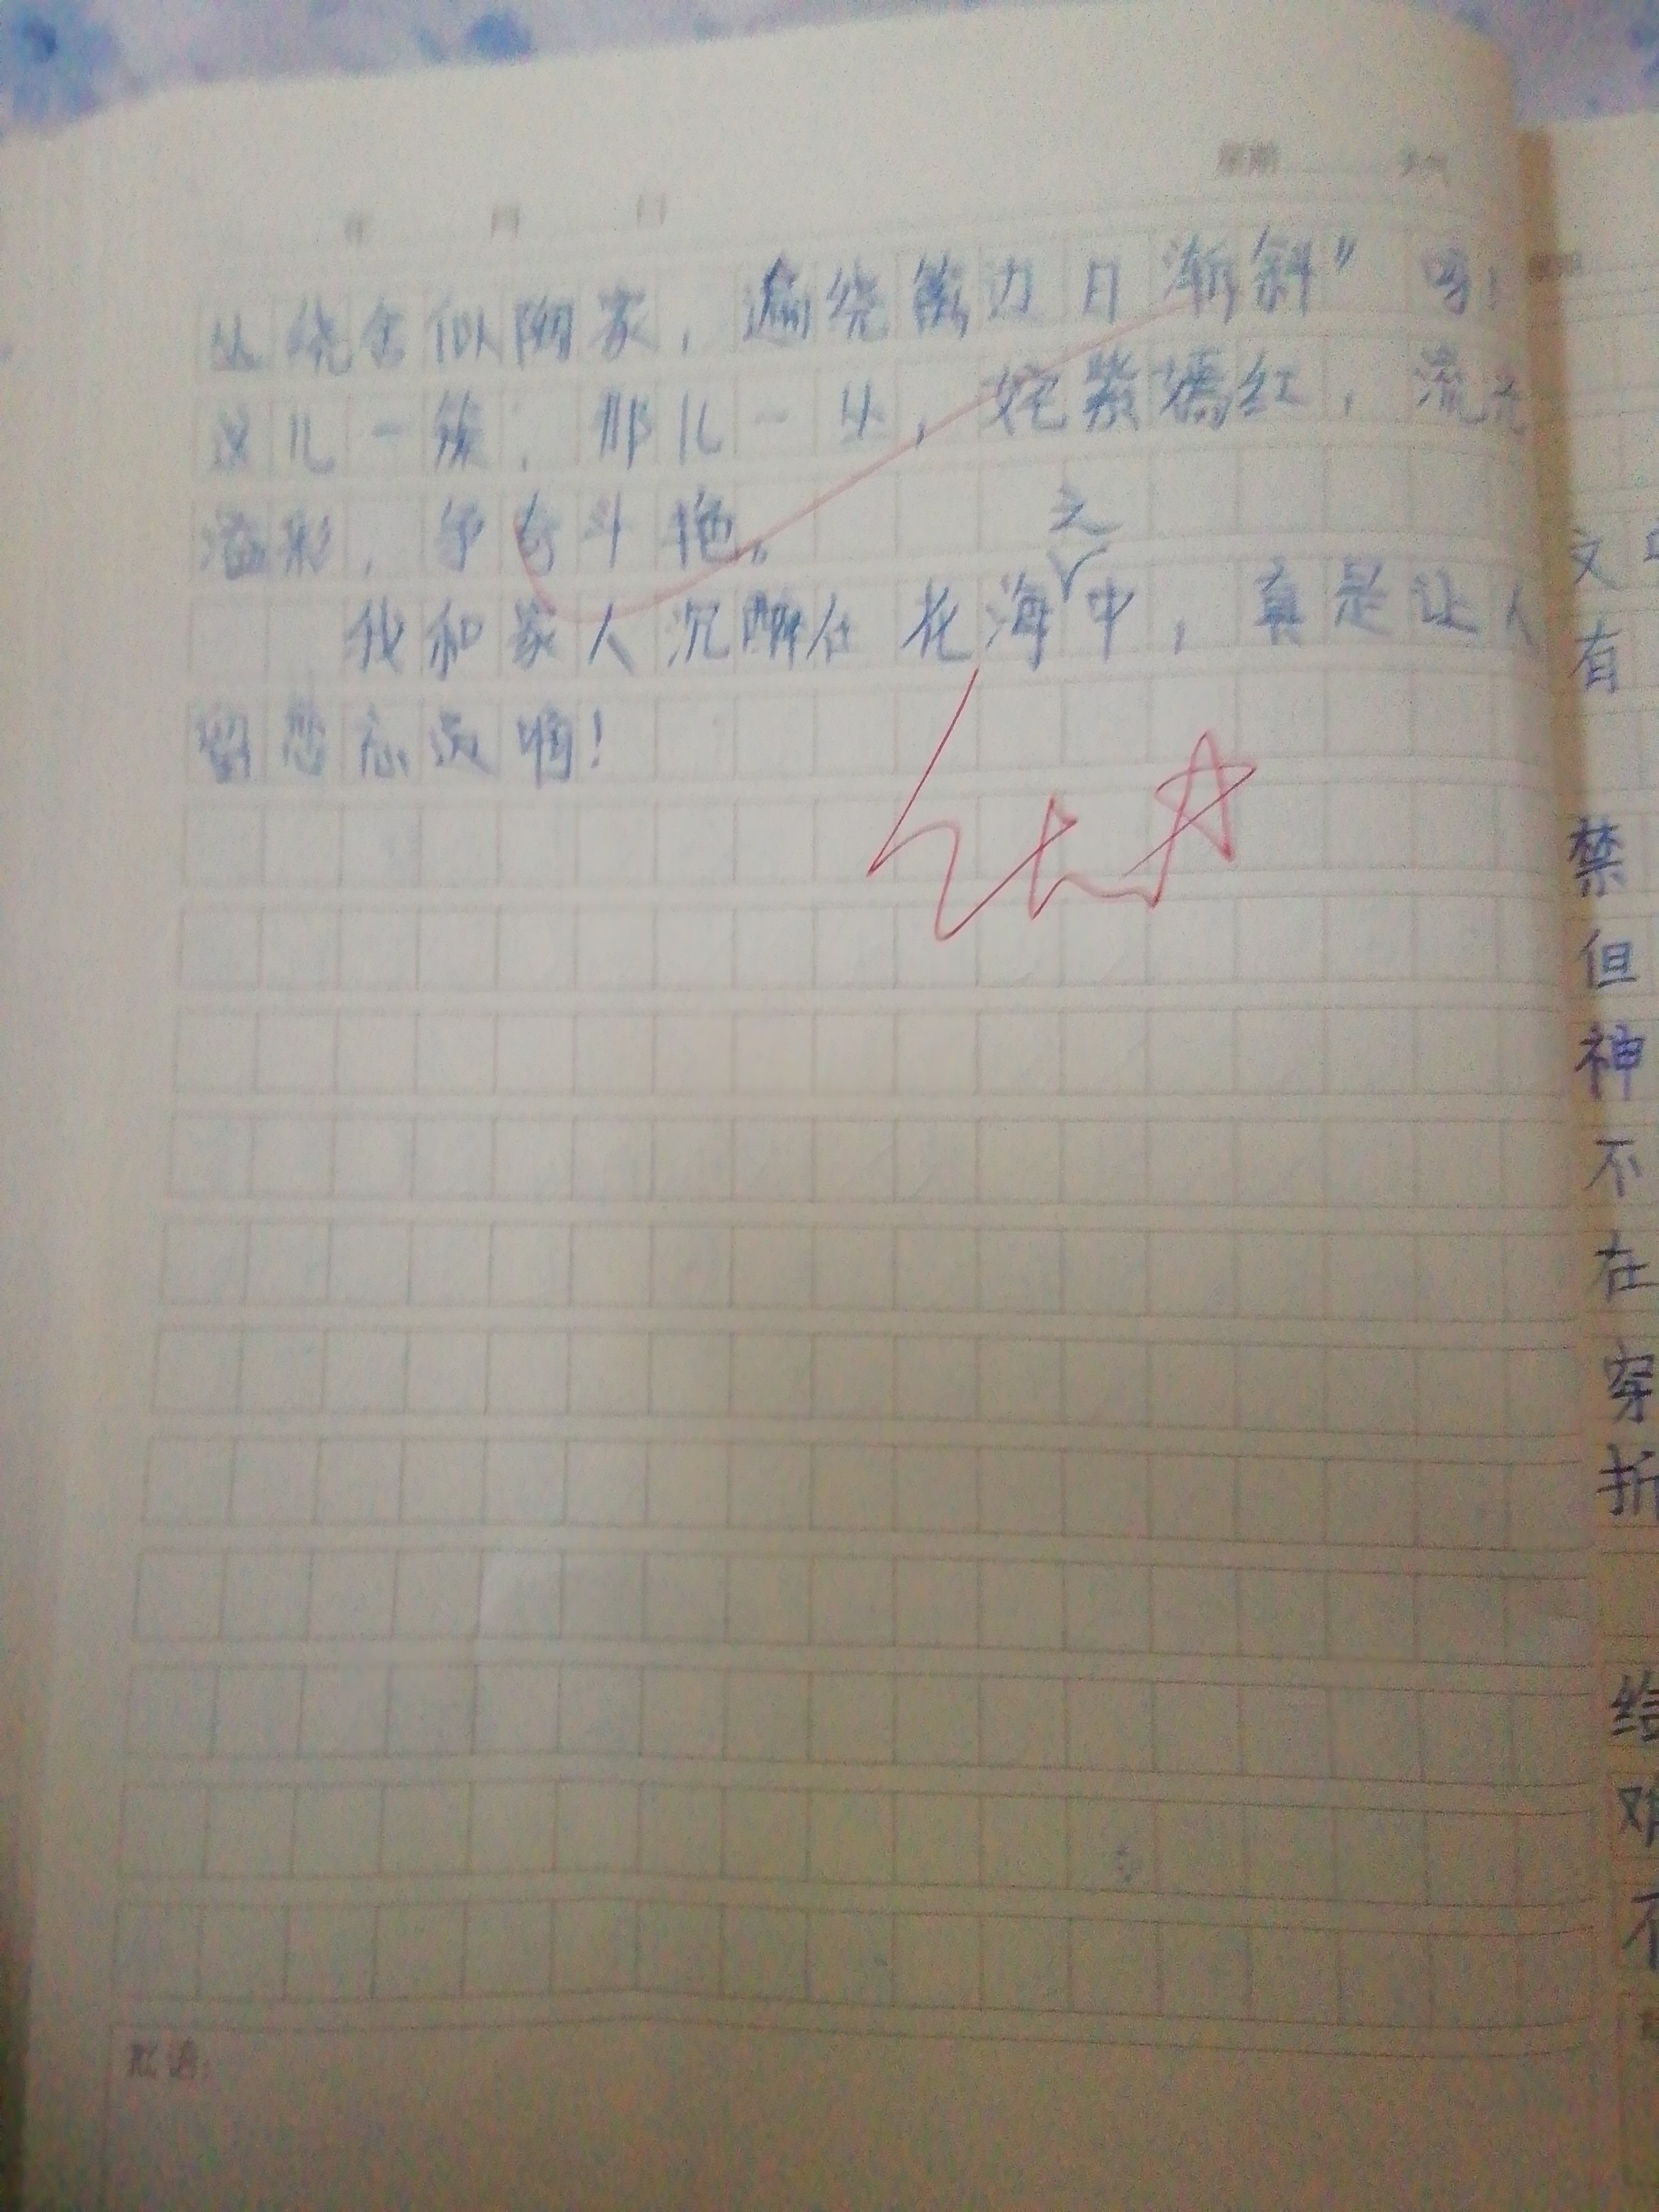 星期 天气
年 月 日
丛绕舍似陶家，遍绕篱边日渐斜”吗！
这儿一簇，那儿一丛，姹紫嫣红，流光
溢彩，争奇斗艳。
我和家人沉醉在花海之中，真是让人
留恋忘返啊！
批语：
文
有
禁
但
神
不
在
穿
折
给
难
不